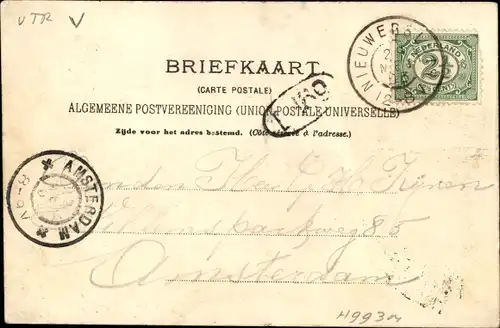 UTR V
BRIEFKAART
(CARTE POSTALE)
ALGEMEENE POSTVEREENIGING (UNION POSTALE UNIVERSELLE)
Zijde voor het adres bestemd. (Côté réservé à l'adresse.)
NEDERLAND
2½
CENT
NIEUWER
AMSTERDAM
den Heer
85
Amsterdam
H993m